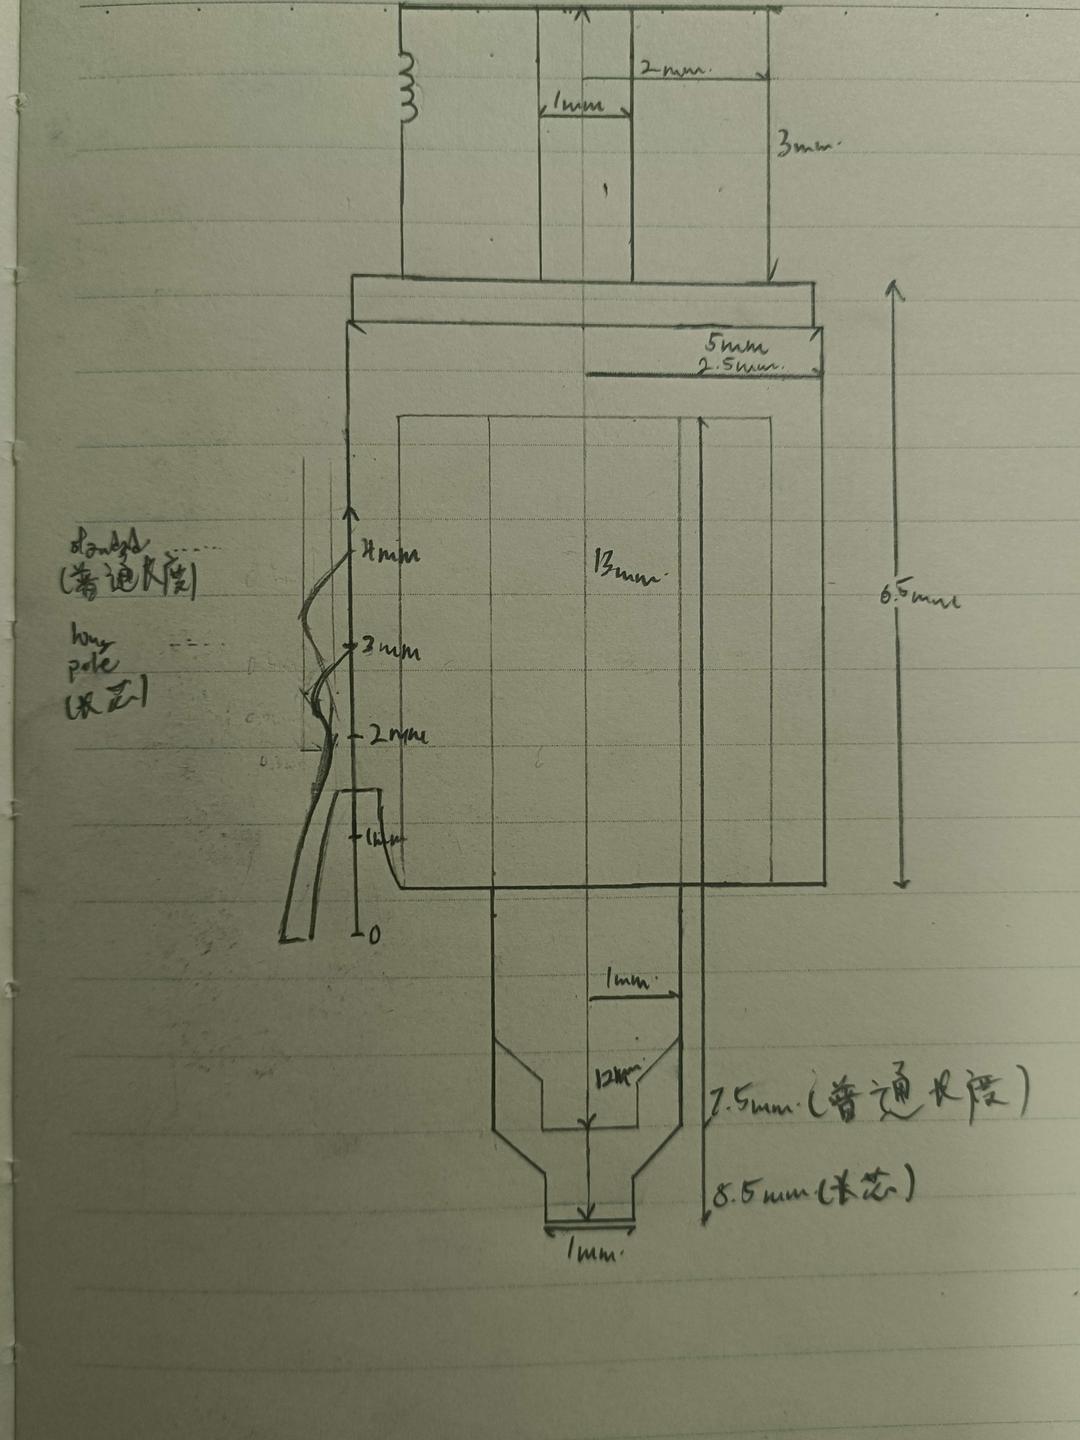 2mm.
1mm
3mm.
5mm
2.5mm.
standard
(普通长度)
4mm
13mm.
6.5mm
long
pole
(长芯)
3mm
2mm
1mm
0
1mm.
12mm
7.5mm.(普通长度)
8.5mm.(长芯)
1mm.